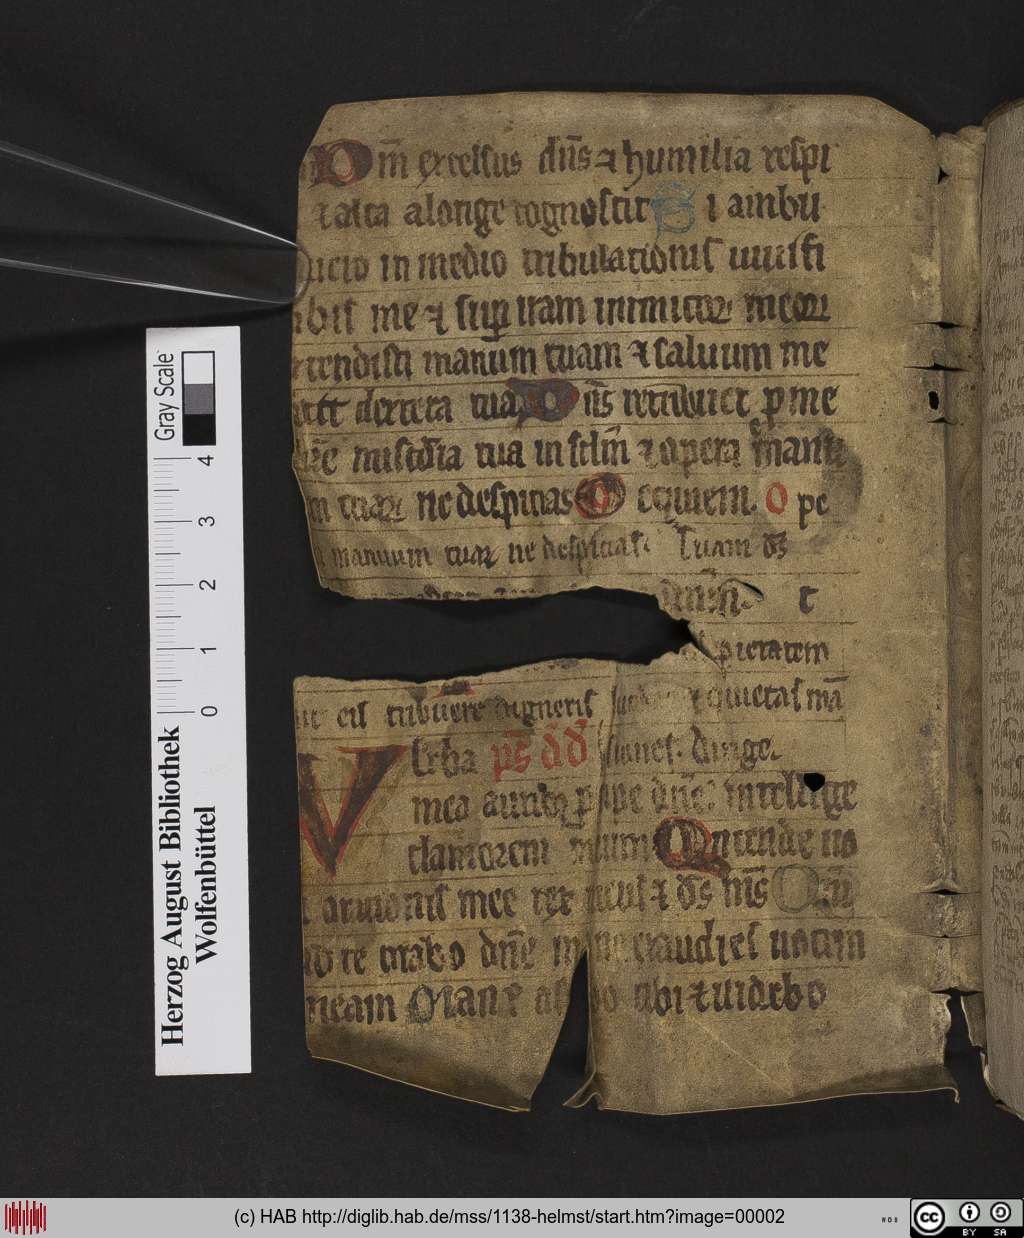 Qm̅ excelsus dn̅s ⁊ humilia respi
t alta a longe cognoscit Si ambu
in medio tribulationis uiuifi
bis me ⁊ sup iram inimicoꝝ meoꝝ
tendisti manum tuam ⁊ saluum me
dextera tua Dn̅s retribuet ꝓ me
mi̅a tua in sc̅lm̅ ⁊ opera manu
m tuaꝝ ne despicias Requiem. Ope
manuum tuaꝝ ne despicias. Tuam ds̅
pietatem
eis tribuere digneris quietas ma̅
Verba ps̅ dd̅ dirige.
mea auribꝫ ꝑcipe dn̅e: intellige
clamorem meum Intende uo
orationis mee rex meus ⁊ ds̅ ms̅ Qm̅
ad te orabo dn̅e exaudies uocem
meam Mane abo tibi ⁊ uidebo
Gray Scale
0 1 2 3 4
Herzog August Bibliothek
Wolfenbüttel
(c) HAB http://diglib.hab.de/mss/1138-helmst/start.htm?image=00002
WDB
cc
BY SA